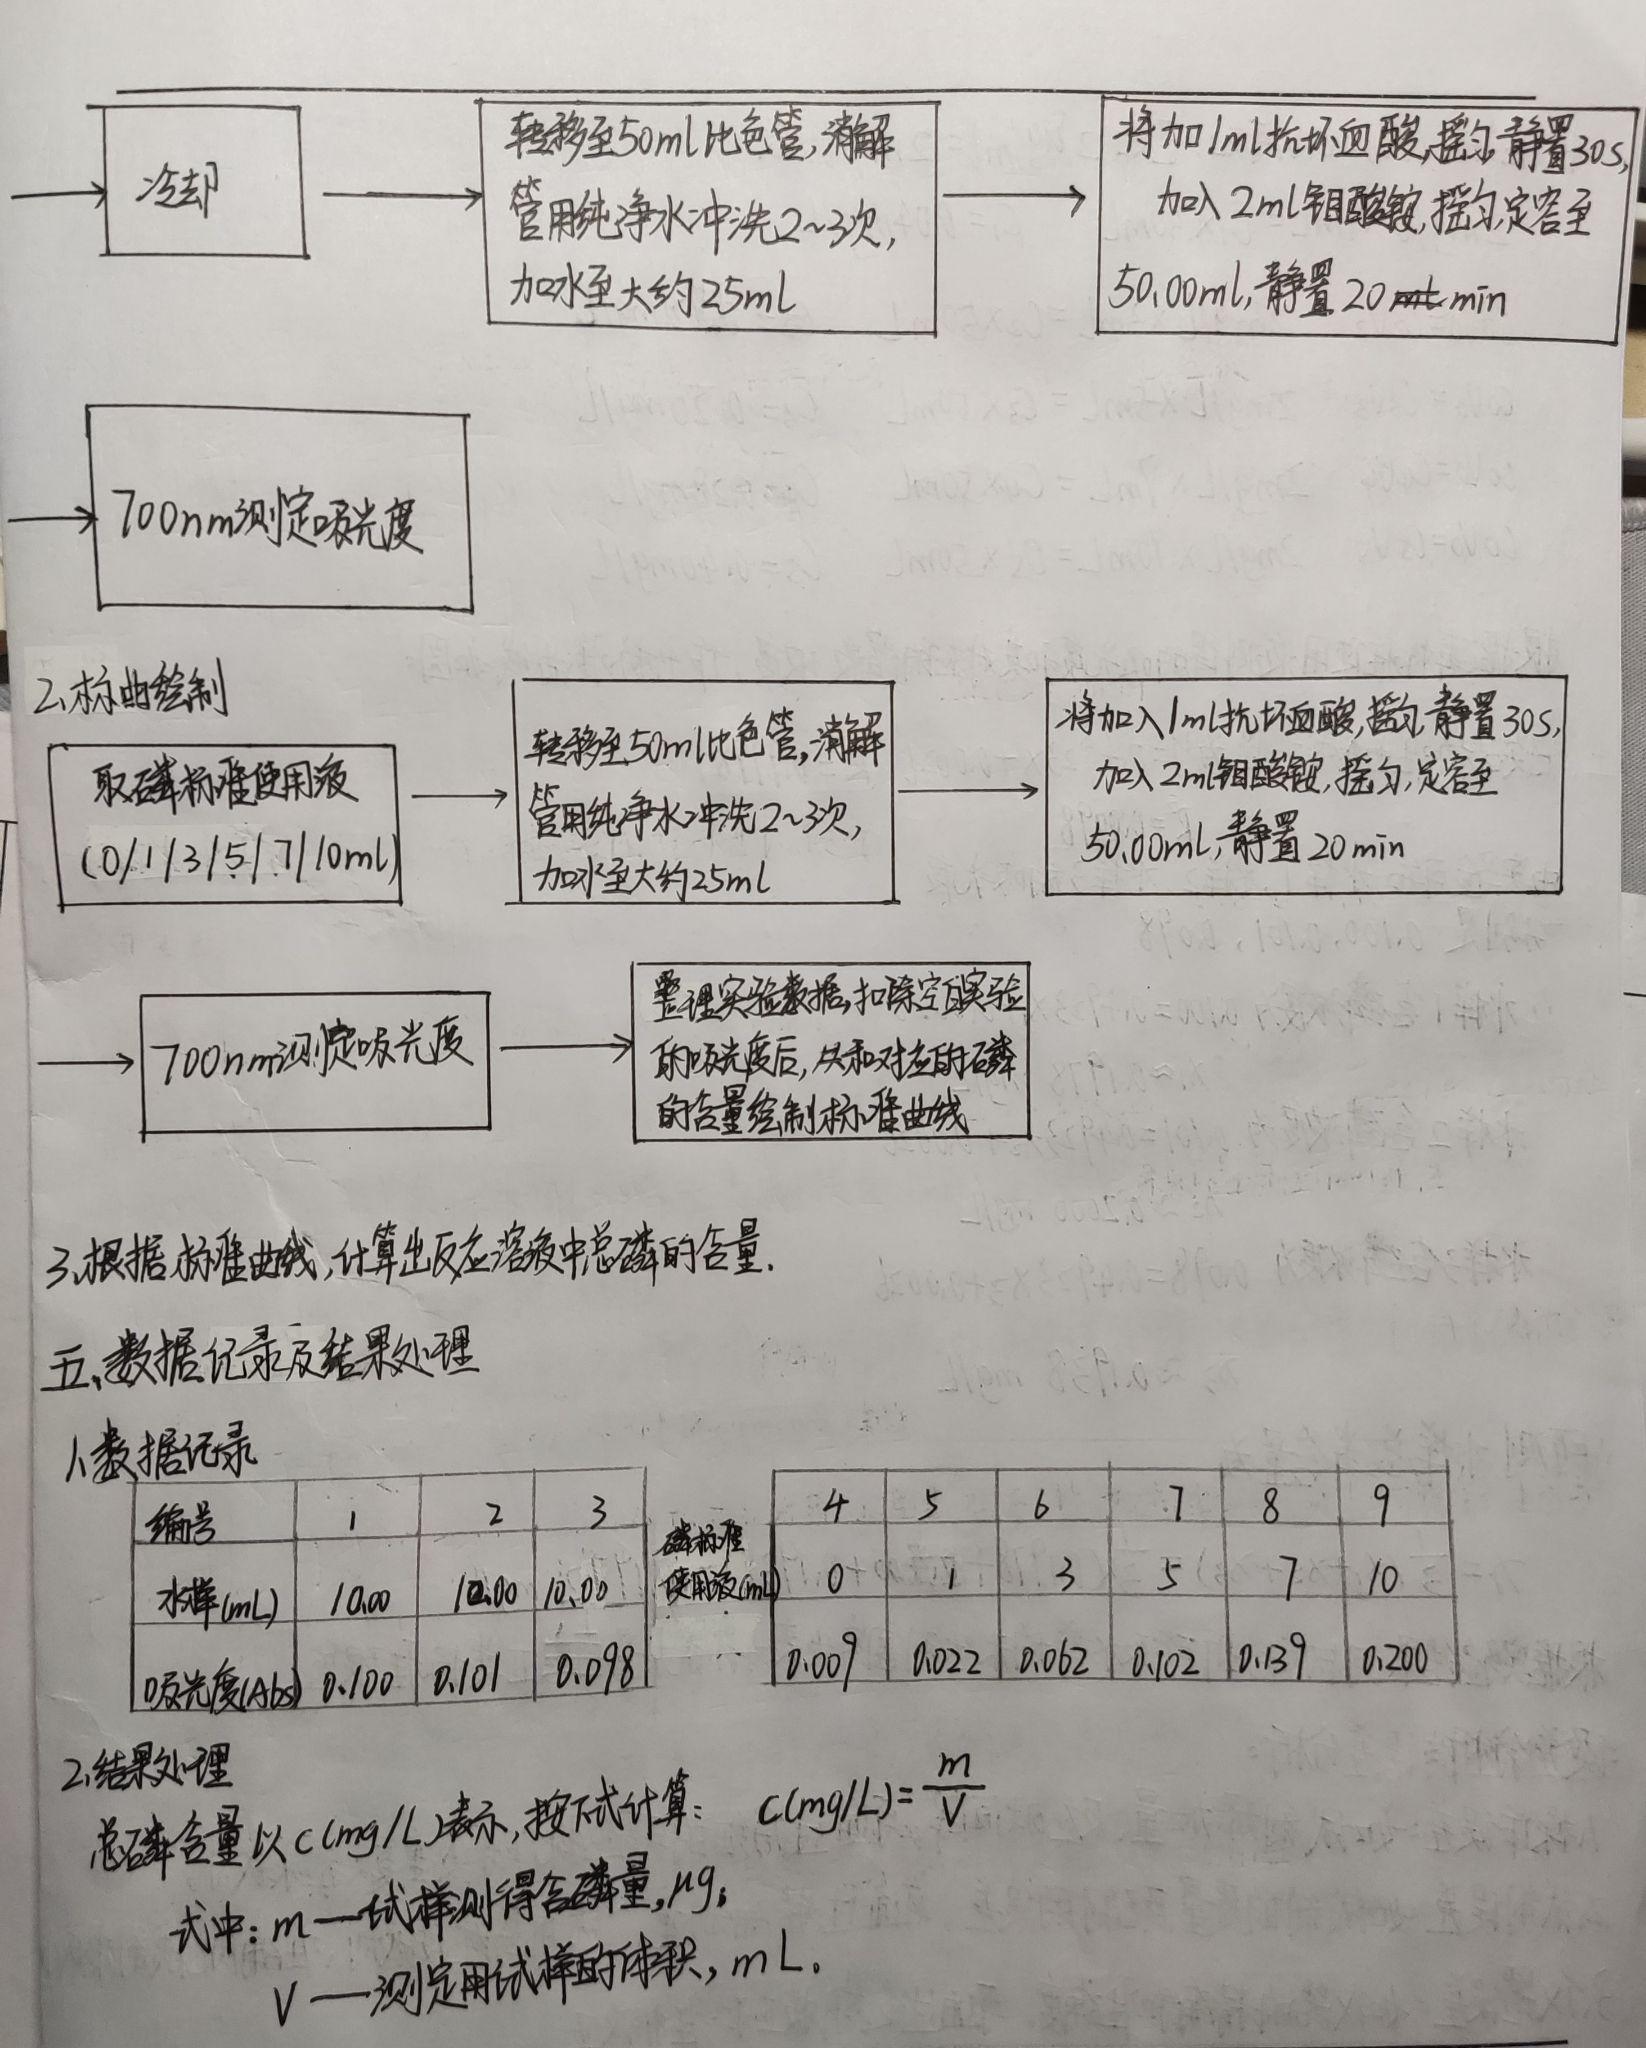 冷却
转移至50ml比色管,消解
管用纯净水冲洗2~3次,
加水至大约25mL
将加1ml抗坏血酸,摇匀,静置30s,
加入2ml钼酸铵,摇匀,定容至
50.00ml,静置20 min
700nm测定吸光度
2.标曲绘制
取磷标准使用液
(0/1/3/5/7/10ml)
转移至50ml比色管,消解
管用纯净水冲洗2~3次,
加水至大约25mL
将加入1ml抗坏血酸,摇匀,静置30s,
加入2ml钼酸铵,摇匀,定容至
50.00ml,静置20min
700nm测定吸光度
整理实验数据,扣除空白实验
的吸光度后,从和对应的磷
的含量绘制标准曲线
3.根据标准曲线,计算出反应溶液中总磷的含量.
五、数据记录及结果处理
1.数据记录
编号 1 2 3 4 5 6 7 8 9
水样(mL) 10.00 10.00 10.00 磷标准
使用液(mL) 0 1 3 5 7 10
吸光度(Abs) 0.100 0.101 0.098 0.009 0.022 0.062 0.102 0.139 0.200
2.结果处理
总磷含量以c(mg/L)表示,按下式计算: c(mg/L)=m/V
式中: m—试样测得含磷量,μg;
V—测定用试样的体积,mL.